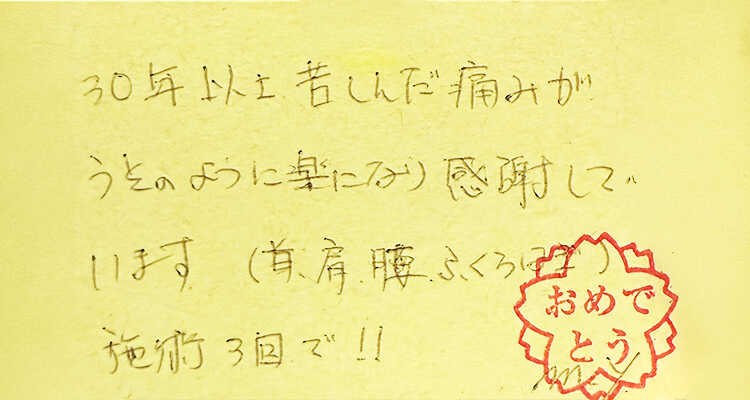 30年以上苦しんだ痛みが
うそのように楽になり感謝して
います (首、肩、腰、ふくらはぎ)
施術3回で!!
おめで
とう
M.Y